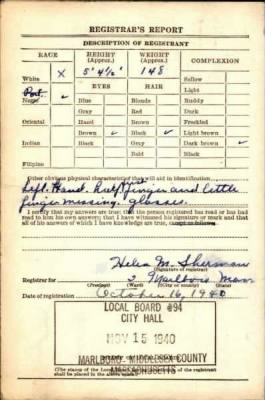 REGISTRAR'S REPORT
DESCRIPTION OF REGISTRANT
RACE HEIGHT (Approx.) WEIGHT (Approx.) COMPLEXION
5' 4½" 148
White X Sallow
EYES HAIR Light
Port.
Negro Blue Blonde Ruddy
Gray Red Dark
Oriental Hazel Brown ✓ Freckled
Brown ✓ Black Light brown
Indian Black Gray Dark brown ✓
Bald Black
Filipino
Other obvious physical characteristics that will aid in identification.
Left Hand. Half finger and little
finger missing. glasses.
I certify that my answers are true; that the person registered has read or has had
read to him his own answers; that I have witnessed his signature or mark and that
all of his answers of which I have knowledge are true, except as follows:
Helen M. Sherman
(Signature of registrar)
Registrar for 2 Marlboro Mass
(Precinct) (Ward) (City or county) (State)
Date of registration October 16, 1940
LOCAL BOARD #94
CITY HALL
NOV 15 1940
MARLBORO-MIDDLESEX COUNTY
MASSACHUSETTS
(The stamp of the Local Board
shall be placed in the above space.)